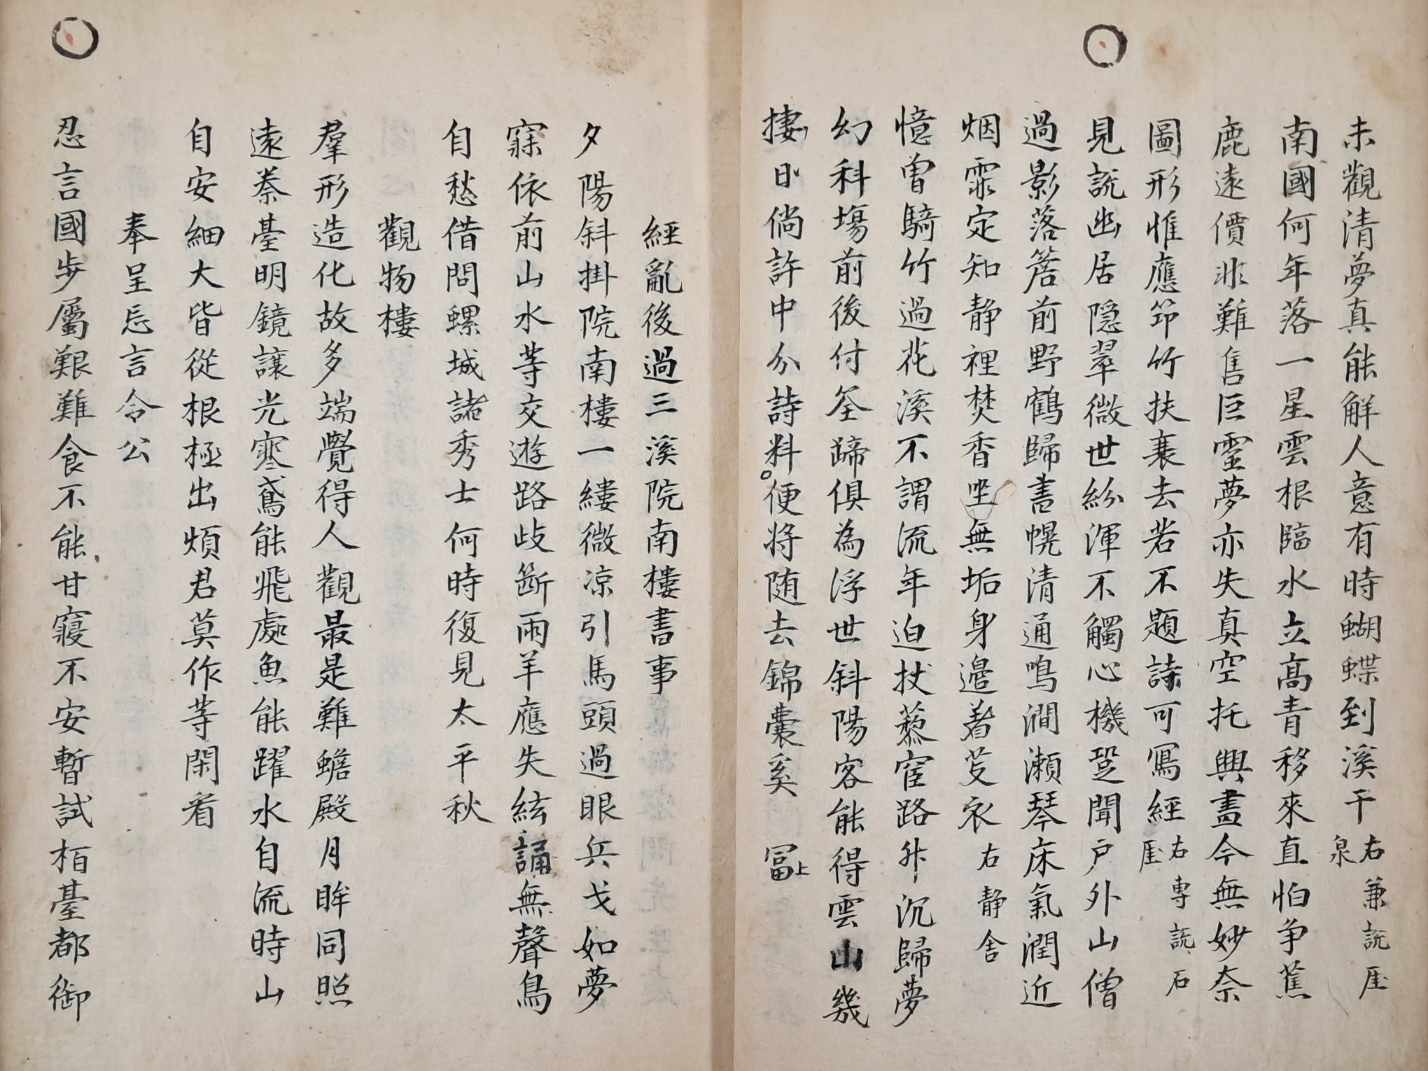 未觀清夢真能解人意有時蝴蝶到溪干右兼說崖泉
南國何年落一星雲根臨水立高青移來直怕争蕉
鹿遠價非難售巨靈夢亦失真空托興畫今無妙奈
圖形惟應筇竹扶衰去若不題詩可寫經右專說石崖
見說幽居隠翠微世紛渾不觸心機跫聞户外山僧
過影落簷前野鶴歸書幌清通鳴澗瀨琴床氣潤近
烟霏定知静裡焚香坐無垢身邉着芰衣右静舍
憶曽騎竹過花溪不謂流年迫杖藜宦路升沉歸夢
幻科塲前後付筌蹄俱為浮世斜陽客能得雲山幾
捿日倘許中分詩料便将随去錦囊奚冨上
經亂後過三溪院南樓書事
夕陽斜掛院南樓一縷微凉引馬頭過眼兵戈如夢
寐依前山水等交遊路歧斷雨羊應失絃誦無聲鳥
自愁借問螺城諸秀士何時復見太平秋
觀物樓
羣形造化故多端覺得人觀最是難蟾殿月眸同照
遠秦臺明鏡讓光寒鳶能飛處魚能躍水自流時山
自安細大皆從根極出煩君莫作等閑看
奉呈忘言令公
忍言國步屬艱難食不能甘寢不安暫試栢臺都御